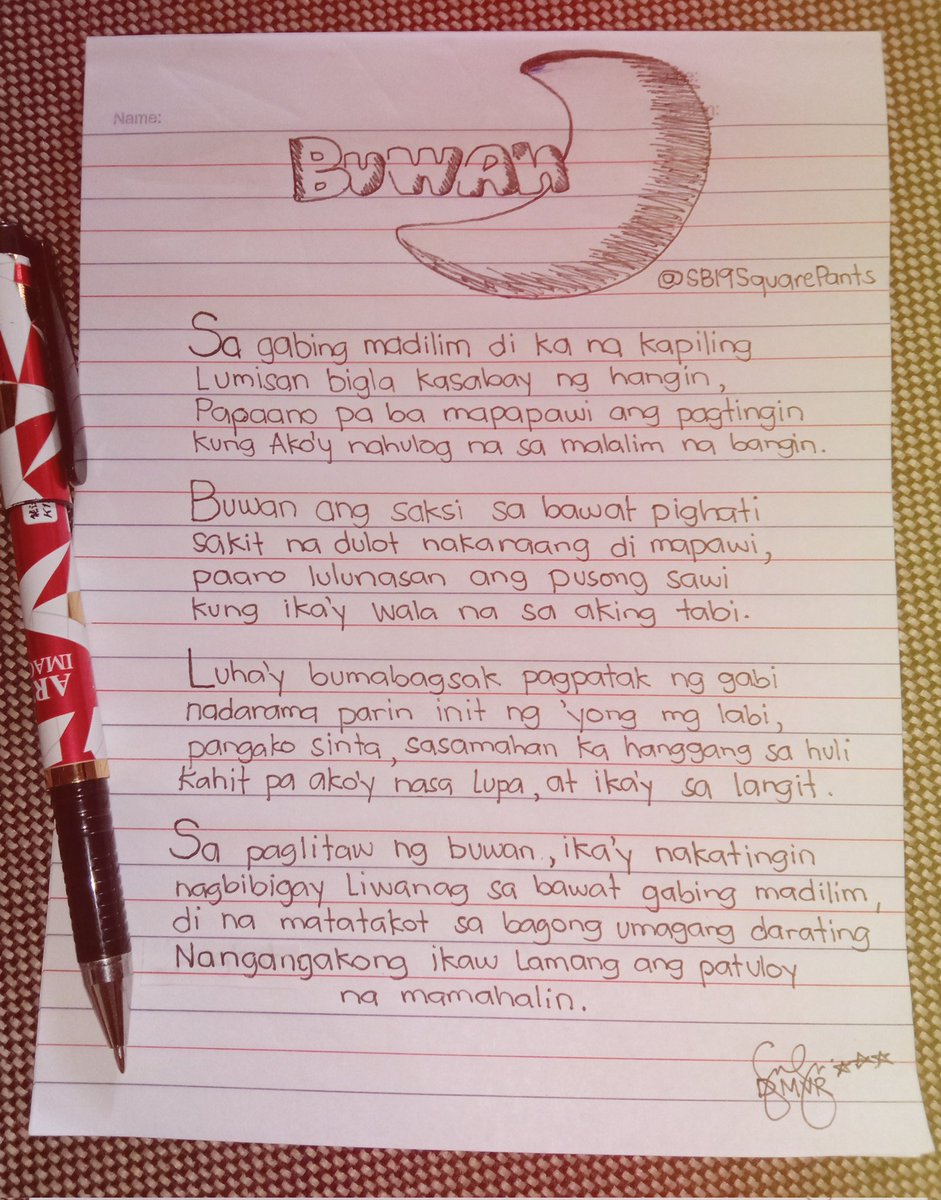 Name:
BUWAN
@SB19SquarePants
Sa gabing madilim di ka na kapiling
Lumisan bigla kasabay ng hangin,
Papaano pa ba mapapawi ang pagtingin
kung Ako'y nahulog na sa malalim na bangin.
Buwan ang saksi sa bawat pighati
sakit na dulot nakaraang di mapawi,
paaro lulunasan ang pusong sawi
kung ika'y wala na sa aking tabi.
Luha'y bumabagsak pagpatak ng gabi
nadarama parin init ng 'yong mg labi,
pangako sinta, sasamahan ka hanggang sa huli
kahit pa ako'y nasa lupa, at ika'y sa langit.
Sa paglitaw ng buwan, ika'y nakatingin
nagbibigay Liwanag sa bawat gabing madilim,
di na matatakot sa bagong umagang darating
Nangangakong ikaw Lamang ang patuloy
na mamahalin.
AR
IMA